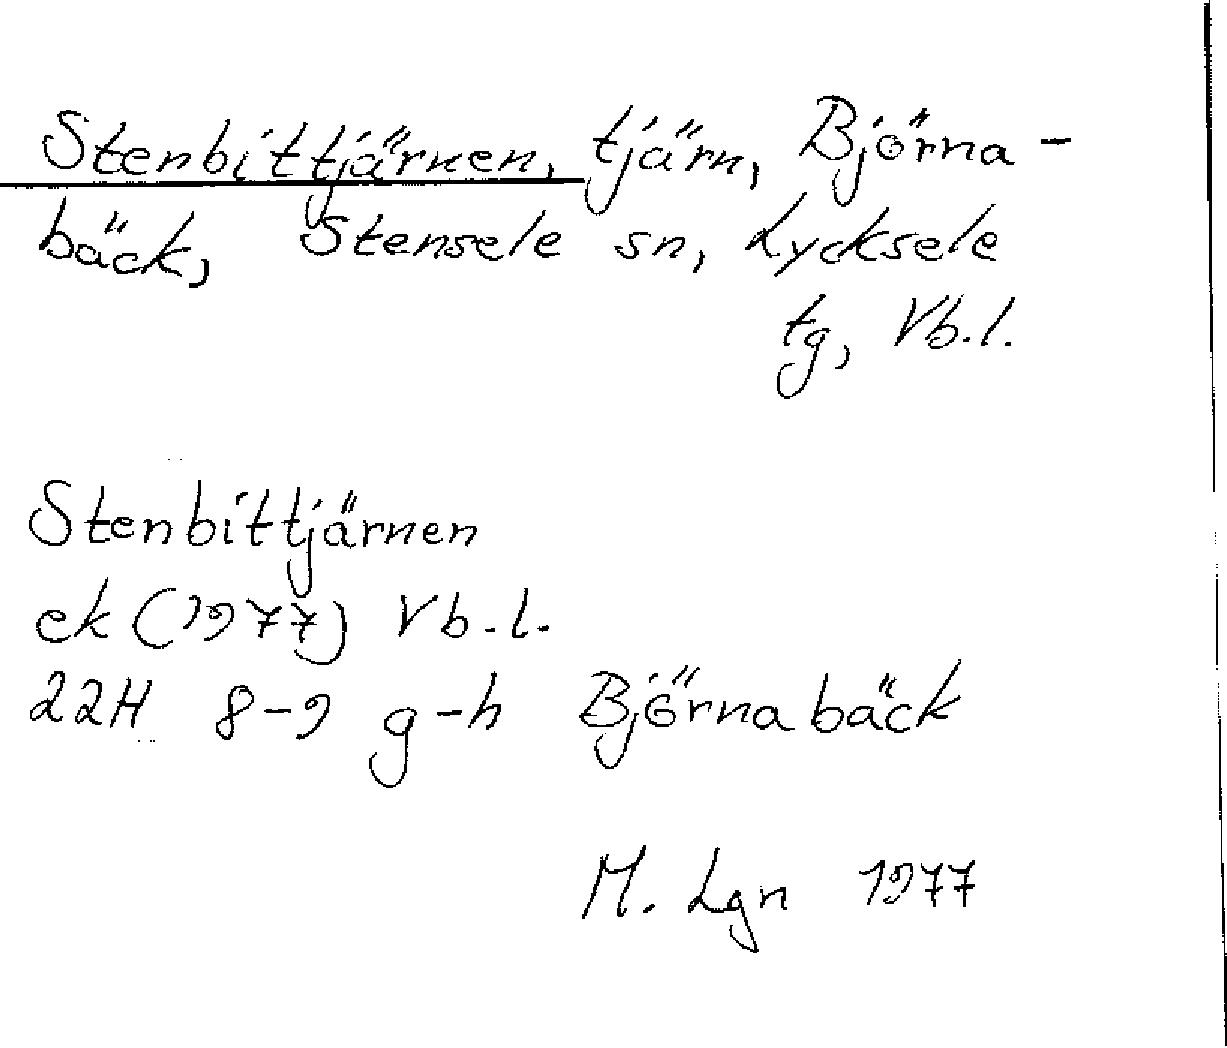 Stenbittjärnen, tjärn, Björna-
bäck, Stensele sn, Lycksele
tg, Vb.l.
Stenbittjärnen
ek (1977) Vb.l.
22H 8-9 g-h Björnabäck
M. Lgn 1977